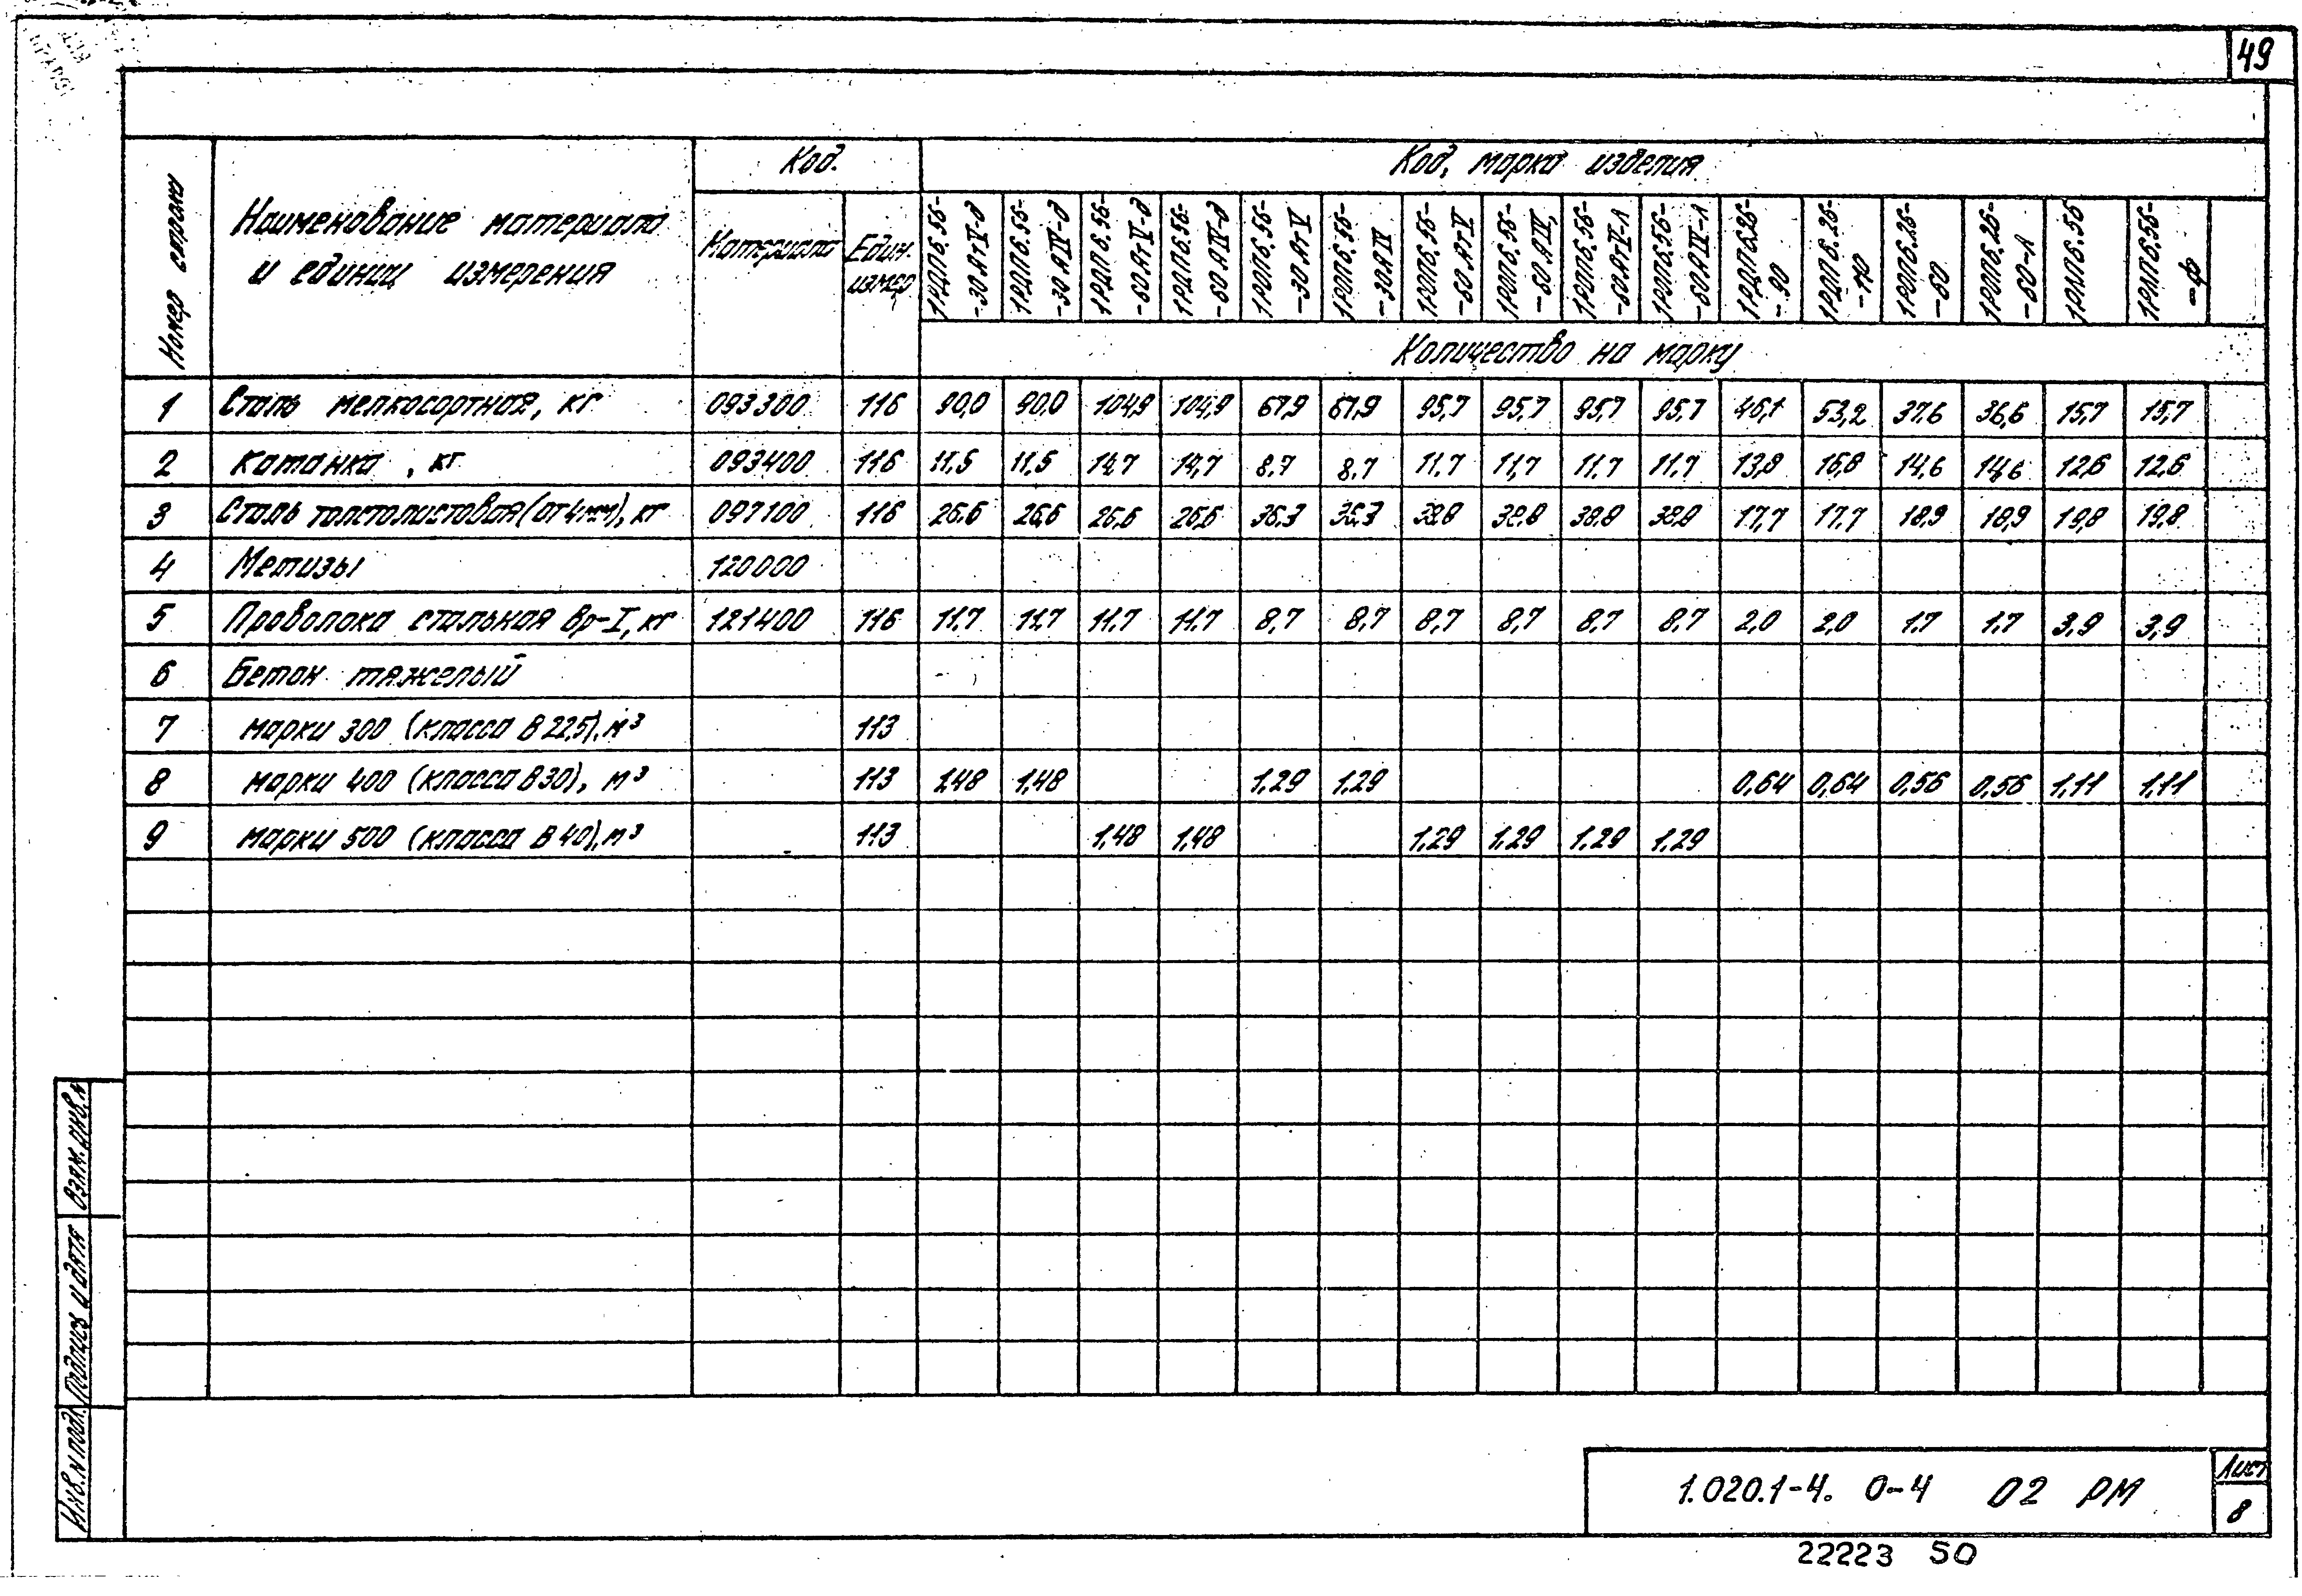 49
Номер строки
Наименование материала и единиц измерения
Код.
Материала
Един. измер
Код, марка изделия
1РДП6.56-30АтV-д
1РДП6.56-30АIV-д
1РДП6.56-60АтV-д
1РДП6.56-60АIV-д
1РОП6.56-30АтV
1РОП6.56-30АIV
1РОП6.56-60АтV
1РОП6.56-60АIV,
1РОП6.56-60АтV-Л
1РОП6.56-60АIV-Л
1РДП6.26-90
1РДП6.26-110
1РОП6.26-60
1РОП6.26-60-Л
1РЛП6.56
1РЛП6.56-ф
Количество на марку
1 Сталь мелкосортная, кг 093300 116 90,0 90,0 104,9 104,9 67,9 67,9 95,7 95,7 95,7 95,7 46,1 53,2 37,6 36,6 15,7 15,7
2 Катанка, кг 093400 116 11,5 11,5 14,7 14,7 8,7 8,7 11,7 11,7 11,7 11,7 13,8 16,8 14,6 14,6 12,6 12,6
3 Сталь толстолистовая (от 4мм), кг 097100 116 26,6 26,6 26,6 26,6 36,3 36,3 38,8 38,8 38,8 38,8 17,7 17,7 18,9 18,9 19,8 19,8
4 Метизы 120000
5 Проволока стальная Вр-I, кг 121400 116 11,7 11,7 11,7 11,7 8,7 8,7 8,7 8,7 8,7 8,7 2,0 2,0 1,7 1,7 3,9 3,9
6 Бетон тяжелый
7 марки 300 (класса В22,5), м³ 113
8 марки 400 (класса В30), м³ 113 1,48 1,48 1,29 1,29 0,64 0,64 0,56 0,56 1,11 1,11
9 марки 500 (класса В40), м³ 113 1,48 1,48 1,29 1,29 1,29 1,29
Взам.инв.№
Подпись и дата
Инв.№ подл.
1.020.1-4. 0-4 02 РМ
Лист
8
22223 50